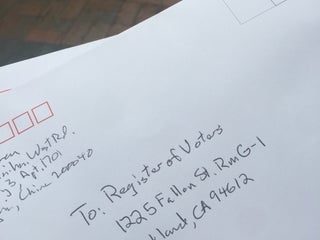 West Rd.
3 Apt. 1701
China 200040
To: Register of Voters
1225 Fallon St. Rm G-1
land, CA 94612